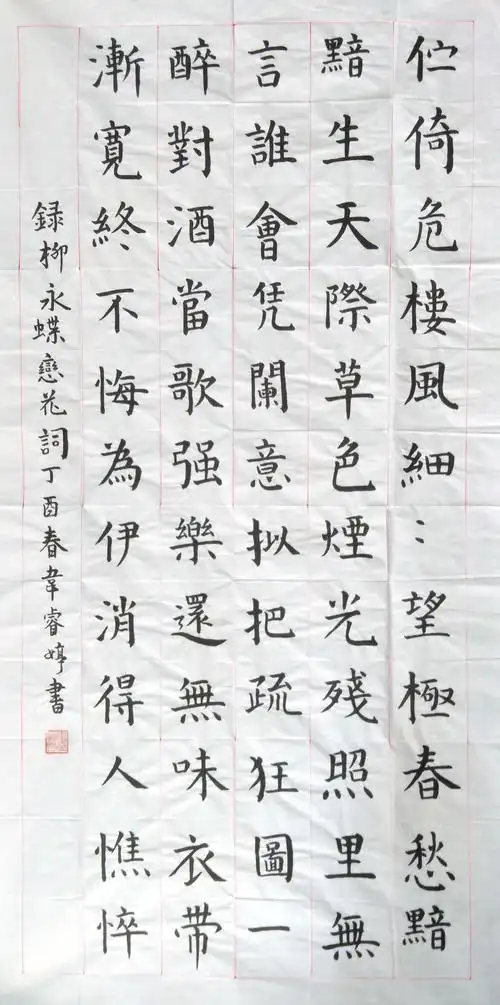 伫倚危楼風細：望極春愁黯
黯生天際草色煙光殘照里無
言誰會凭闌意拟把疏狂圖一
醉對酒當歌强樂還無味衣帶
漸寬終不悔為伊消得人憔悴
録柳永蝶戀花詞丁酉春韋睿婷書